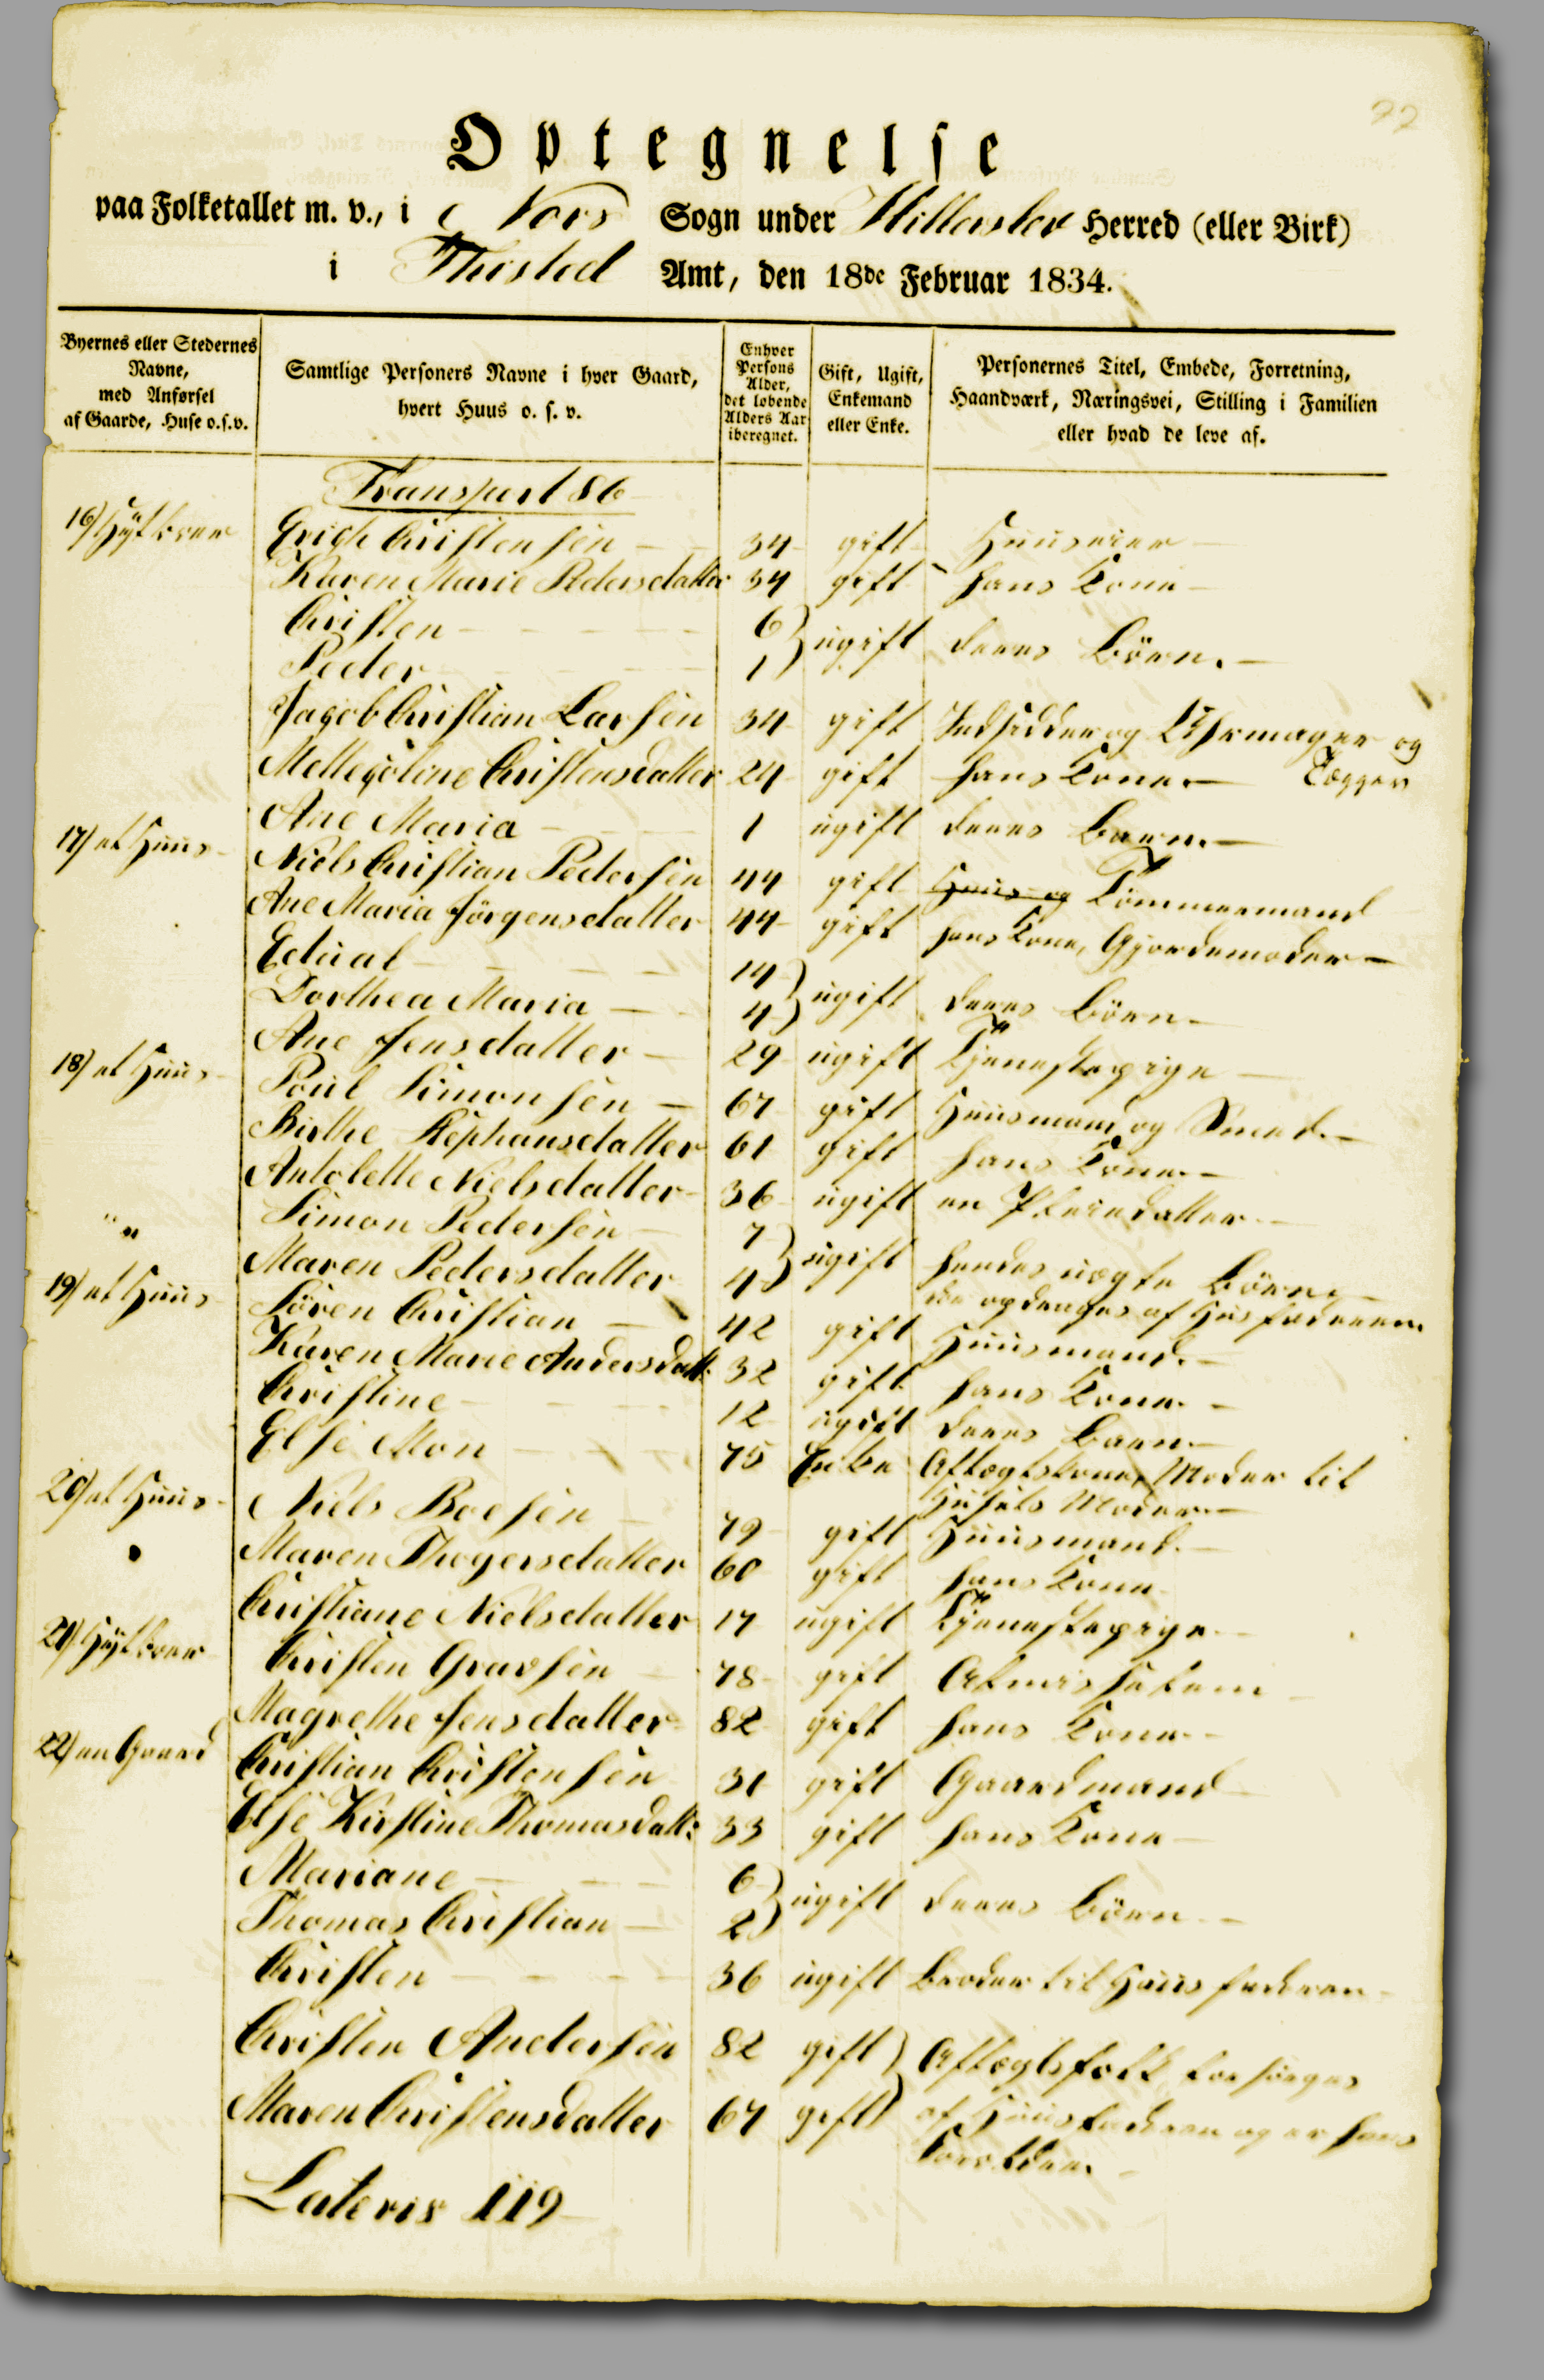 22
Optegnelse
paa Folketallet m. v., i Nors Sogn under Hillerslev Herred (eller Birk)
i Thisted Amt, den 18de Februar 1834.
Byernes eller Stedernes Navne, med Anførsel af Gaarde, Huse o.s.v.
Samtlige Personers Navne i hver Gaard, hvert Huus o. s. v.
Enhver Persons Alder, det løbende Alders Aar iberegnet.
Gift, Ugift, Enkemand eller Enke.
Personernes Titel, Embede, Forretning, Haandværk, Næringsvei, Stilling i Familien eller hvad de leve af.
Transport 86
16) Erich Christensen 34 gift
Karen Marie Pedersdatter 34 gift hans Kone
Christen 6
Peder 1 } ugift deres Börn.
Jacob Christian Larsen 34 gift Indsidder og Uhrmager og
Mette Christensdatter 24 gift hans Kone
Ane Maria 1 ugift deres Barn
17) et Huus Niels Christian Pedersen 44 gift Huus og Tömmermand
Ane Maria Jörgensdatter 44 gift hans Kone, Gjordemoder
Edual 14
Dorthea Maria 4 } ugift deres Börn
Ane Jensdatter 29 ugift Tjenestepige
18) et Huus Poul Simonsen 67 gift Huusmand og Smed
Birthe Stephansdatter 61 gift hans Kone
Antolette Nielsdatter 36 ugift en Pleiedatter
Simon Pedersen 7
Maren Pedersdatter 4 } ugift hendes uægte Börn
de opdrages af Husfaderen
19) et Huus Sören Christian 42 gift Huusmand
Karen Marie Andersdatt: 32 gift hans Kone
Christine 12 ugift deres Barn
Else Mon 75 Enke Aftægtskone, Moder til
Husets Moder
20) et Huus Niels Boesen 79 gift Huusmand
Maren Thogersdatter 60 gift hans Kone
Christiane Nielsdatter 17 ugift Tjenestepige
21) Christen Gravsen 78 gift Almisselem
Magrethe Jensdatter 82 gift hans Kone
22) en Gaard Christian Christensen 31 gift Gaardmand
Else Kirstine Thomasdatt: 33 gift hans Kone
Mariane 6
Thomas Christian 2 } ugift deres Börn
Christen 36 ugift Broder til Huusfaderen
Christen Andersen 82 gift } Aftægtsfolk, forsörges
Maren Christensdatter 67 gift af Huusfaderen og er hans
Forældre
Lateris 119